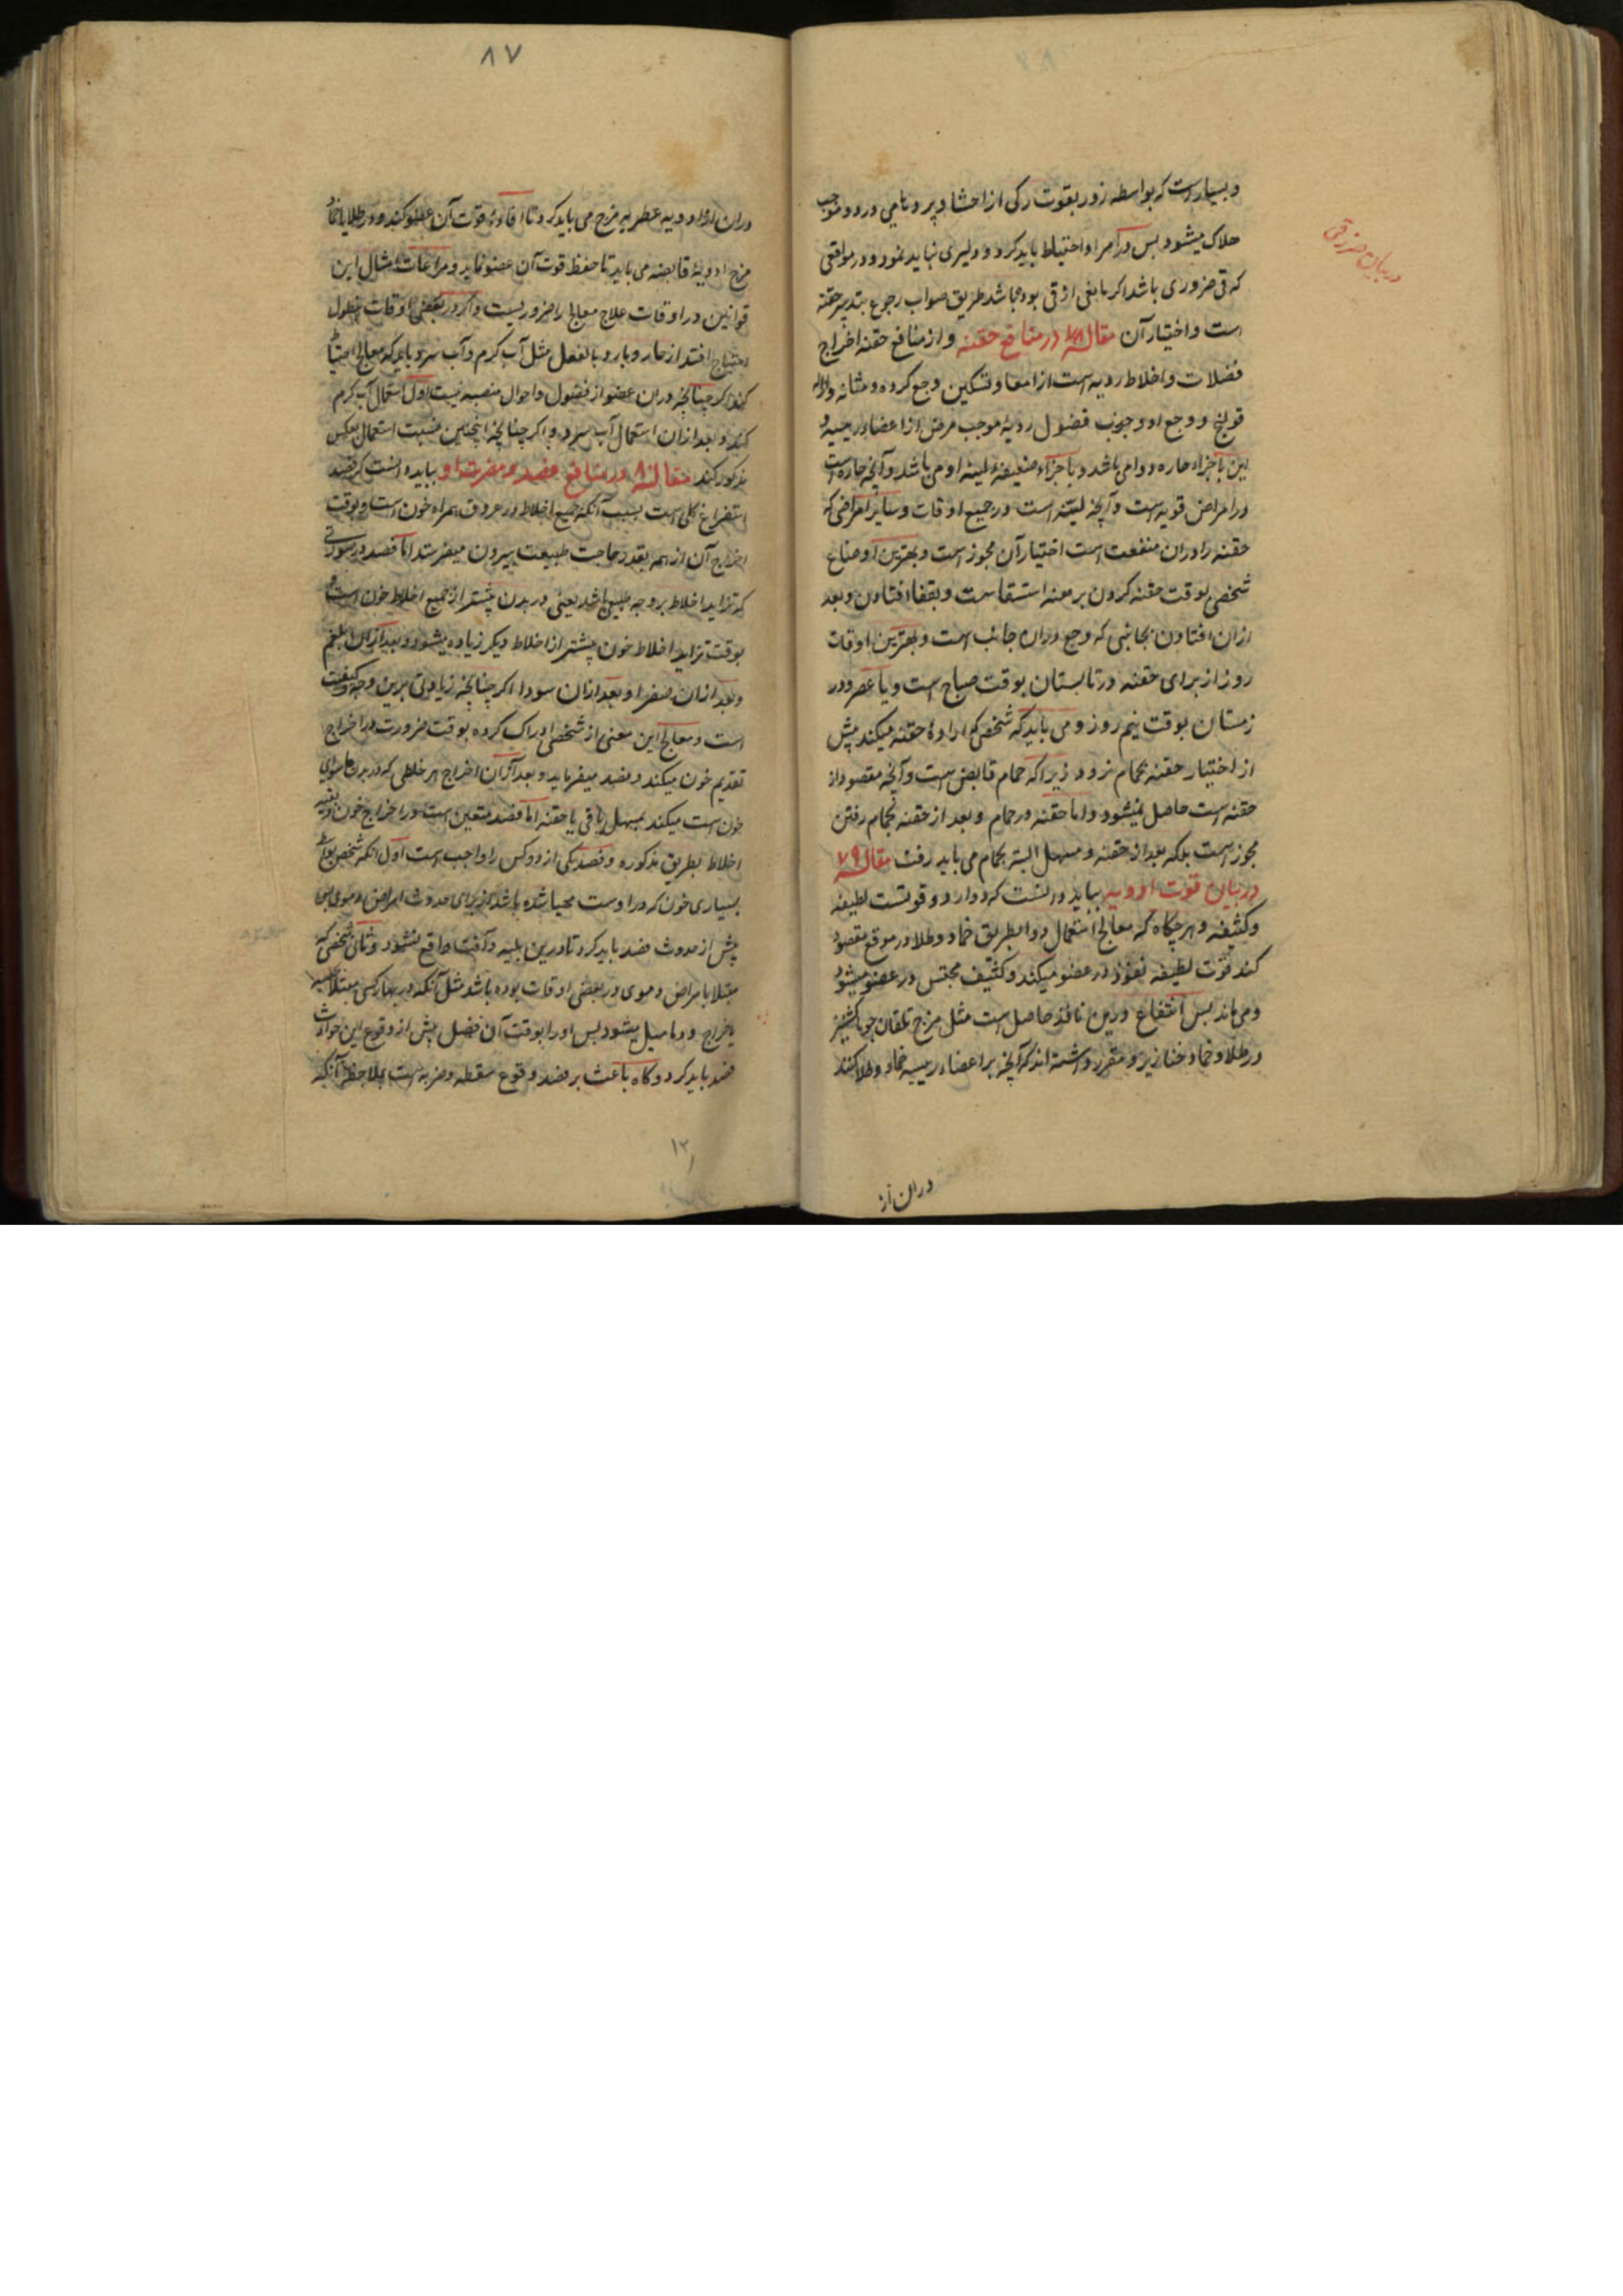 و بسیار است که بواسطه زور بقوت رکی از احشا و پرده نامی درد و موجب
هلاک میشود بس در امر او احتیاط باید کرد و دلیری نباید نمود و در مواقعی
که قی ضروری باشد اکر مانعی از قی بوده باشد طریق صواب رجوع بتدبیر حقنه
است و اختیار آن مقاله ۷۸ در منافع حقنه و از منافع حقنه اخراج
فضلات و اخلاط ردیه است از امعا و تسکین وجع کرده و مثانه و ازاله
قولنج و وجع او و جذب فضول ردیه موجب مرض از اعضاء رییسه و
این باجزاء حاره دوامی باشد و باجزاء ضعیفه لینه او می باشد و آنچه حاده است
در امراض قویه است و آنچه لینه است در جمیع اوقات و سایر امراضی که
حقنه را دران منفعت است اختیار آن مجوز است و بهترین اوضاع
شخصی بوقت حقنه کردن بر معنه استسقاست و بقفا افتادن و بعد
ازان افتادن بجانبی که وجع دران جانب است و بهترین اوقات
روز از برای حقنه در تابستان بوقت صباح است و یا عصر و در
زمستان بوقت نیم روز و می باید که شخصی که ارادهٔ حقنه میکند پیش
از اختیار حقنه بحمام نرود زیرا که حمام قابض است و آنچه مقصود از
حقنه است حاصل نمیشود و اما حقنه در حمام و بعد از حقنه بحمام رفتن
مجوز است بلکه بعد از حقنه و مسهل البته بحمام می باید رفت مقاله ۷۹
در بیان قوت ادویه بباید دانست که دوا را دو قوتست لطیفه
و کثیفه و هر چکاه که معالج استعمال دوا بطریق ضماد و طلا در موقع مقصود
کند قوت لطیفه نفوذ در عضو میکند و کثیف محتبس در عضو میشود
و می ماند بس انتفاع درین نافذ حاصل است مثل مزج تلقان جو باکشنیز
در طلا و ضماد خنازیر و مقرر داشته اند که آنچه بر اعضاء رییسه ضماد و طلا کنند
دران از
در بیان ضرر قی
۸۷
دران از ادویه عطریه مزج می باید کرد تا افادهٔ قوت آن عضو کند و در طلا یا ضماد
مزج ادویهٔ قابضه می باید تا حفظ قوت آن عضو نماید و مراعات امثال این
قوانین در اوقات علاج معالج را ضروریست و اکر در بعضی اوقات بنطول
احتیاج افتد از حار و بارد بالفعل مثل آب کرم و آب سرد باید که معالج احتیاط
کند اکر چنانچه دران عضو از فضول و احوال منصبه نیست اول استعمال آب کرم
کند و بعد ازان استعمال آب سرد و اکر چنانچه اینچنین نیست استعمال بعکس
مذکور کند مقاله ۸۰ در منافع فصد و مضرت او بباید دانست که فصد
استفراغ کلی است بسبب آنکه جمیع اخلاط در عروق همراه خون است و بوقت
اخراج آن از همه بقدر حاجت طبیعت بیرون میفرستد اما فصد در صورتی
که تزاید اخلاط بر وجه طبیعی باشد یعنی در بدن بیشتر از جمیع اخلاط خون است و
بوقت تزاید اخلاط خون بیشتر از اخلاط دیکر زیاده میشود و بعد ازان بلغم
و بعد ازان صفرا و بعد ازان سودا اکر چنانچه زیادتی برین وجه و کیفیت
است و معالج این معنی از شخصی ادراک کرده بوقت ضرورت در اخراج
تقدیم خون میکند و فصد میفرماید و بعد ازان اخراج هر خلطی که در بدن ماسوای
خون است میکند بمسهل یا قی یا حقنه اما فصد متعین است در اخراج خون و بقیه
اخلاط بطریق مذکوره و فصد یکی از دو کس را واجب است اول آنکه شخصی بواسطه
بسیاری خون که در اوست مهیا شده باشد از برای حدوث امراض دموی بس
پیش از حدوث فصد باید کرد تا درین بلیه و آفت واقع نشود و ثانی شخصی که
مبتلا بامراض دموی در بعضی اوقات بوده باشد مثل آنکه در بهار کسی مبتلا
باخراج و دمامیل میشود بس او را بوقت آن فصل پیش از وقوع این حوادث
فصد باید کرد و کاه باعث بر فصد وقوع سقطه و ضربه است بملاحظه آنکه
۱۲